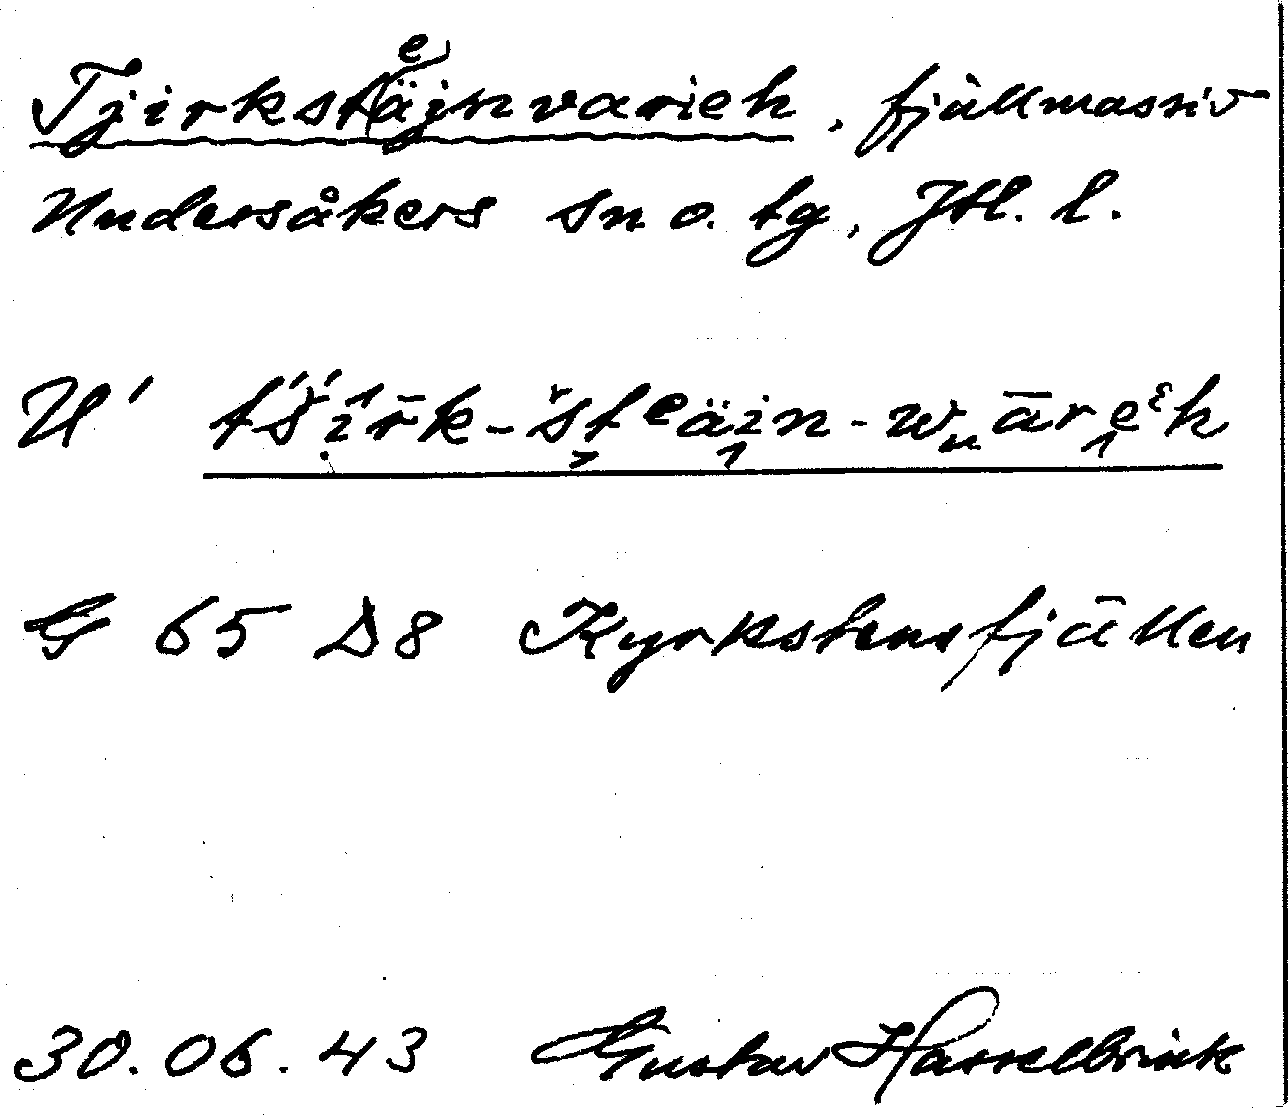 Tjirkst(e)äjnvarieh, fjällmassiv
Undersåkers sn o. tg, Jtl. l.
U' tš́írk-šteäin-wāreᵋh
G 65 D8 Kyrkstensfjällen
30.06.43 Gustav Hasselbrink